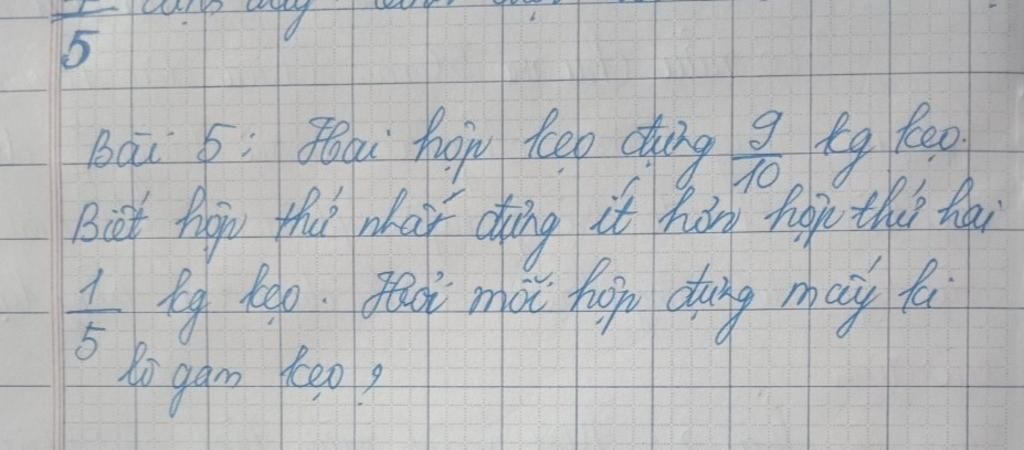 5
Bài 5: Hai hộp kẹo đựng 9/10 kg kẹo.
Biết hộp thứ nhất đựng ít hơn hộp thứ hai
1/5 kg kẹo. Hỏi mỗi hộp đựng mấy ki
lô gam kẹo?